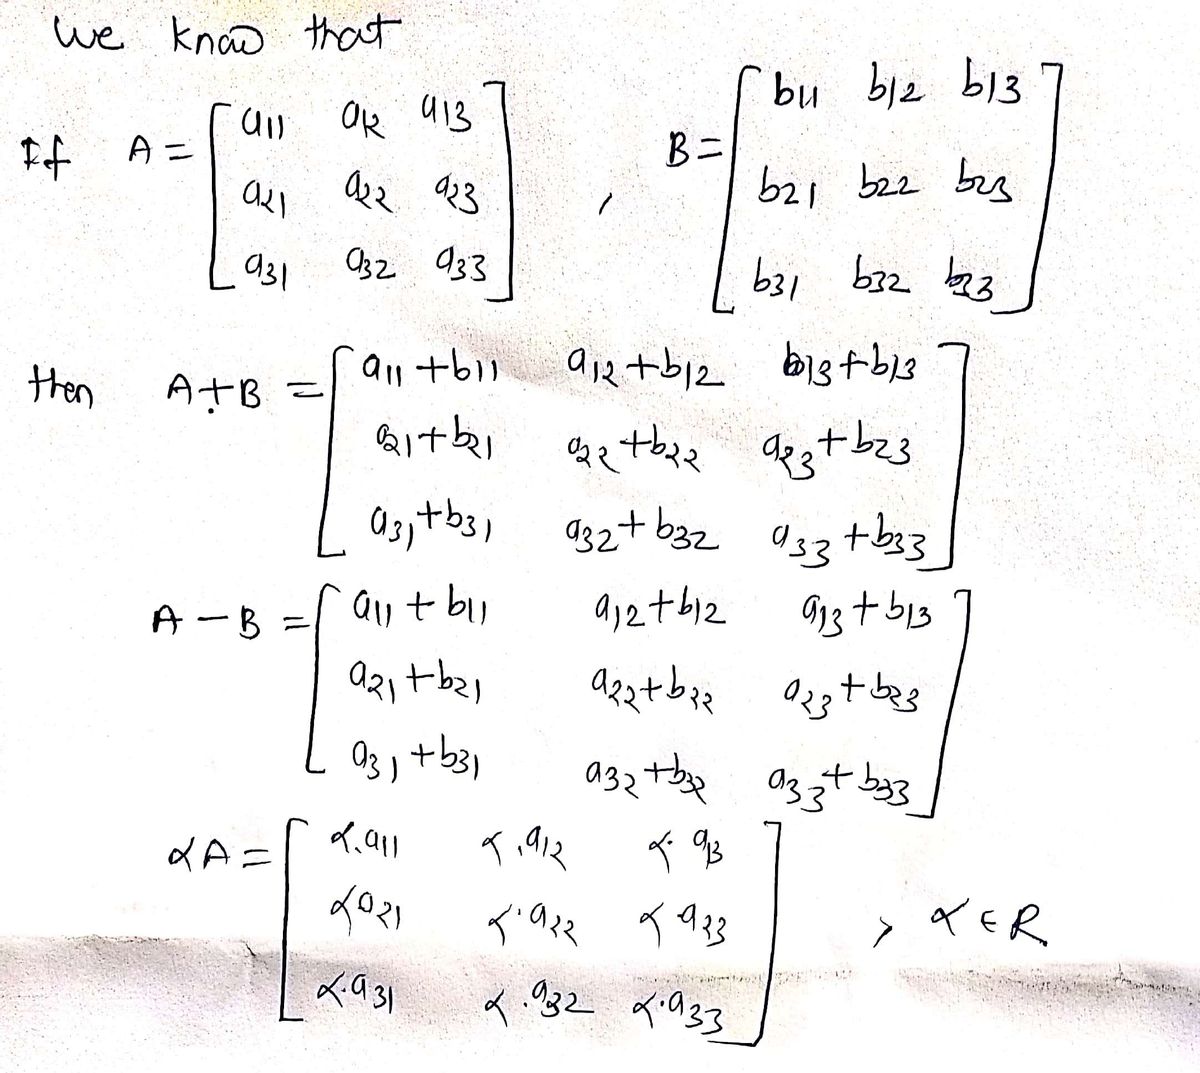 we know that
If A = [ a11 a12 a13 , B = [ b11 b12 b13
a21 a22 a23 b21 b22 b23
a31 a32 a33 ] b31 b32 b33 ]
then A+B = [ a11+b11 a12+b12 b13+b13
a21+b21 a22+b22 a23+b23
a31+b31 a32+b32 a33+b33 ]
A-B = [ a11+b11 a12+b12 a13+b13
a21+b21 a22+b22 a23+b23
a31+b31 a32+b32 a33+b33 ]
αA = [ α.a11 α.a12 α.a13
αa21 α.a22 α a23 , α ∈ R
α.a31 α.a32 α.a33 ]